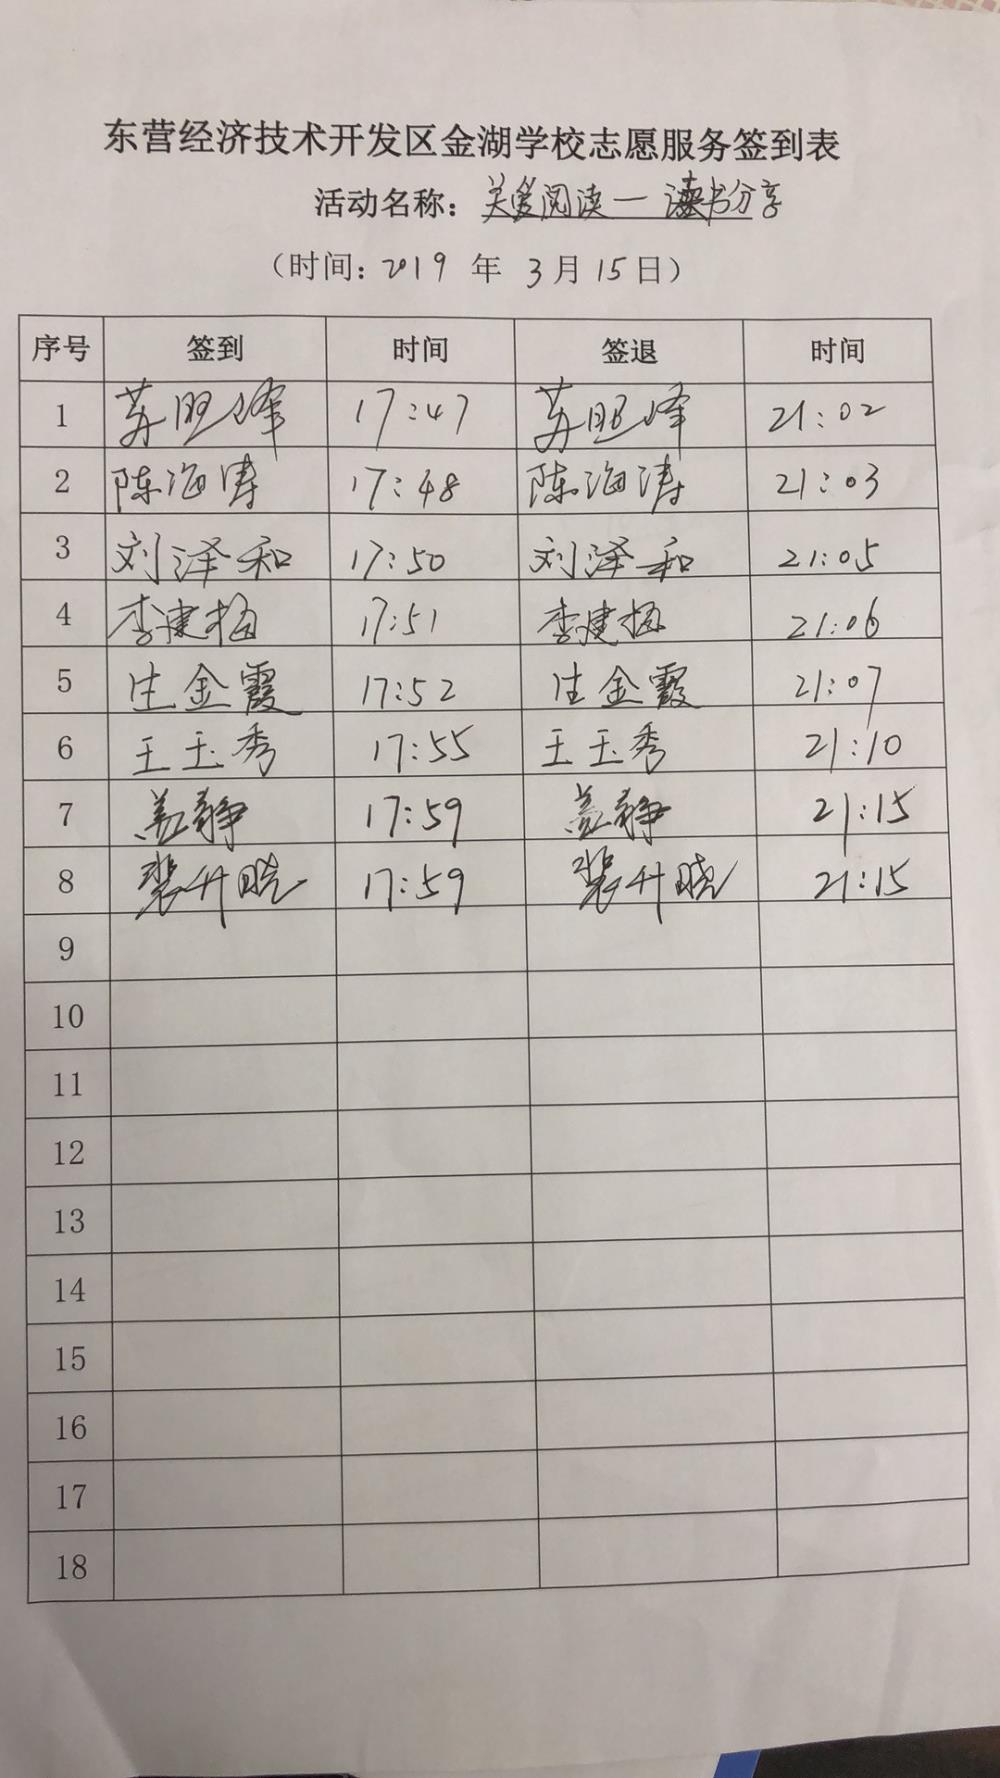 东营经济技术开发区金湖学校志愿服务签到表
活动名称：关爱阅读一读书分享
（时间：2019 年 3 月 15 日）
序号 签到 时间 签退 时间
1 苏 峰 17:47 苏 峰 21:02
2 陈海涛 17:48 陈海涛 21:03
3 刘泽和 17:50 刘泽和 21:05
4 李建梅 17:51 李建梅 21:06
5 生金霞 17:52 生金霞 21:07
6 王玉秀 17:55 王玉秀 21:10
7 盖静 17:59 盖静 21:15
8 裴升晓 17:59 裴升晓 21:15
9
10
11
12
13
14
15
16
17
18